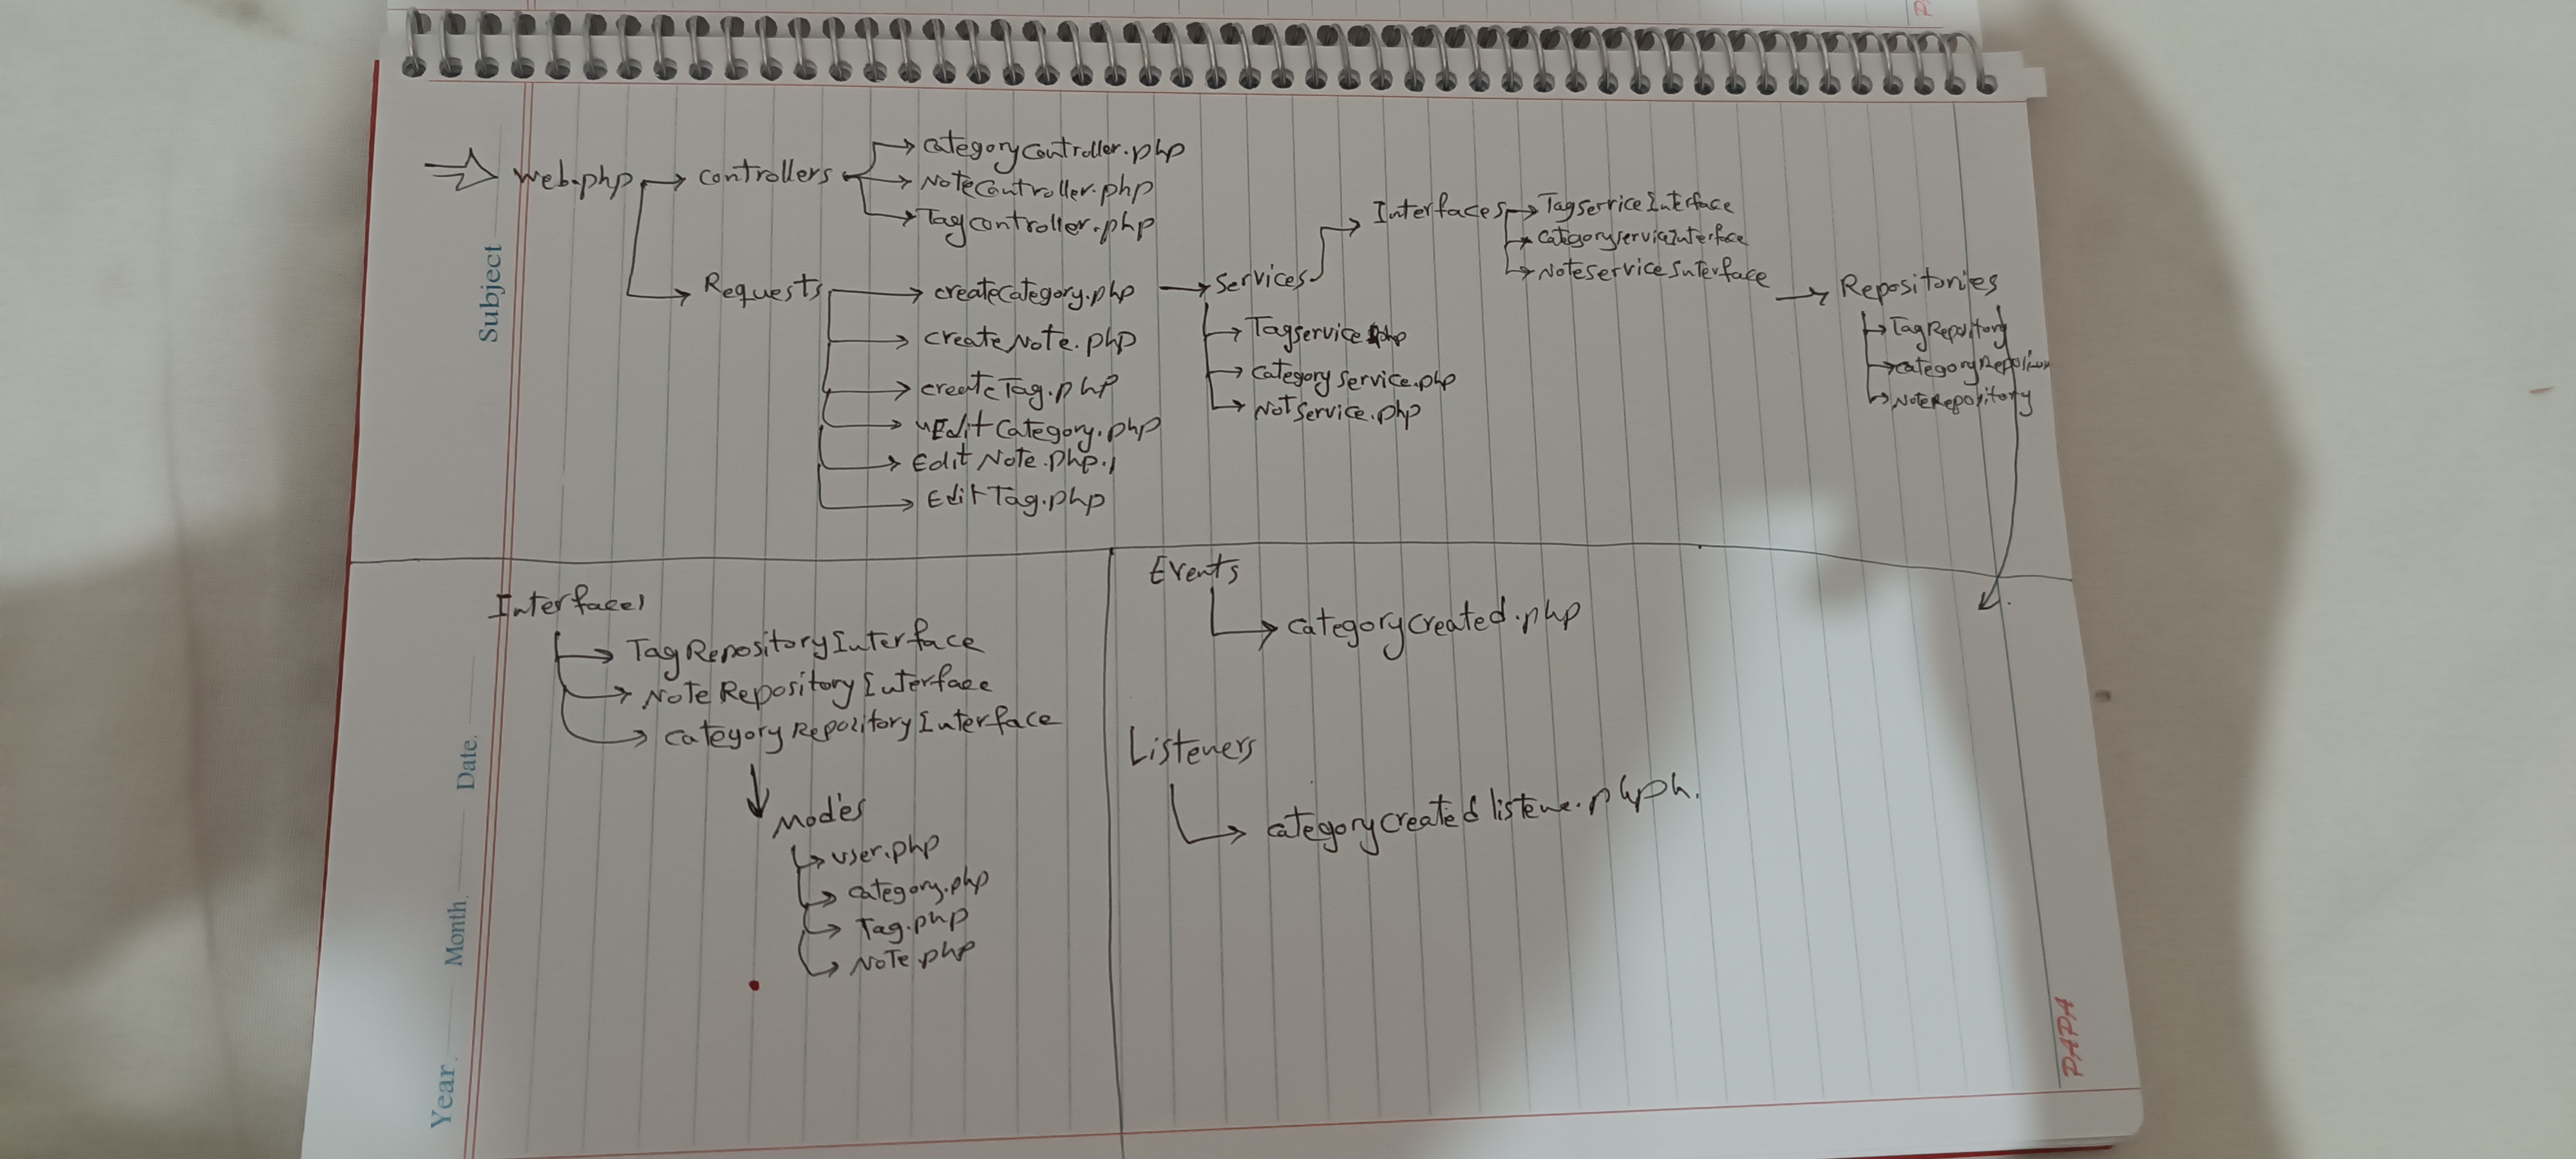 Subject
web.php
controllers
categorycontroller.php
NoteController.php
Tagcontroller.php
Requests
createcategory.php
createNote.php
createTag.php
Edit category.php
Edit Note.php
Edit Tag.php
Services
Tagservice.php
Category service.php
NotService.php
Interfaces
TagserviceInterface
CategoryserviceInterface
NoteserviceInterface
Repositories
TagRepository
NoteRepository
Interface
TagRepositoryInterface
NoteRepositoryInterface
categoryRepositoryInterface
user.php
category.php
Tag.php
Note.php
Events
categorycreated.php
Listeners
Date.
Month.
Year.
PAPA